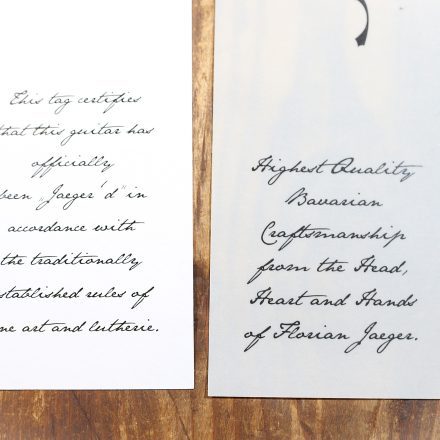 This tag certifies
that this guitar has
officially
been „Jaeger'd" in
accordance with
the traditionally
established rules of
ne art and lutherie.
Highest Quality
Bavarian
Craftsmanship
from the Head,
Heart and Hands
of Florian Jaeger.